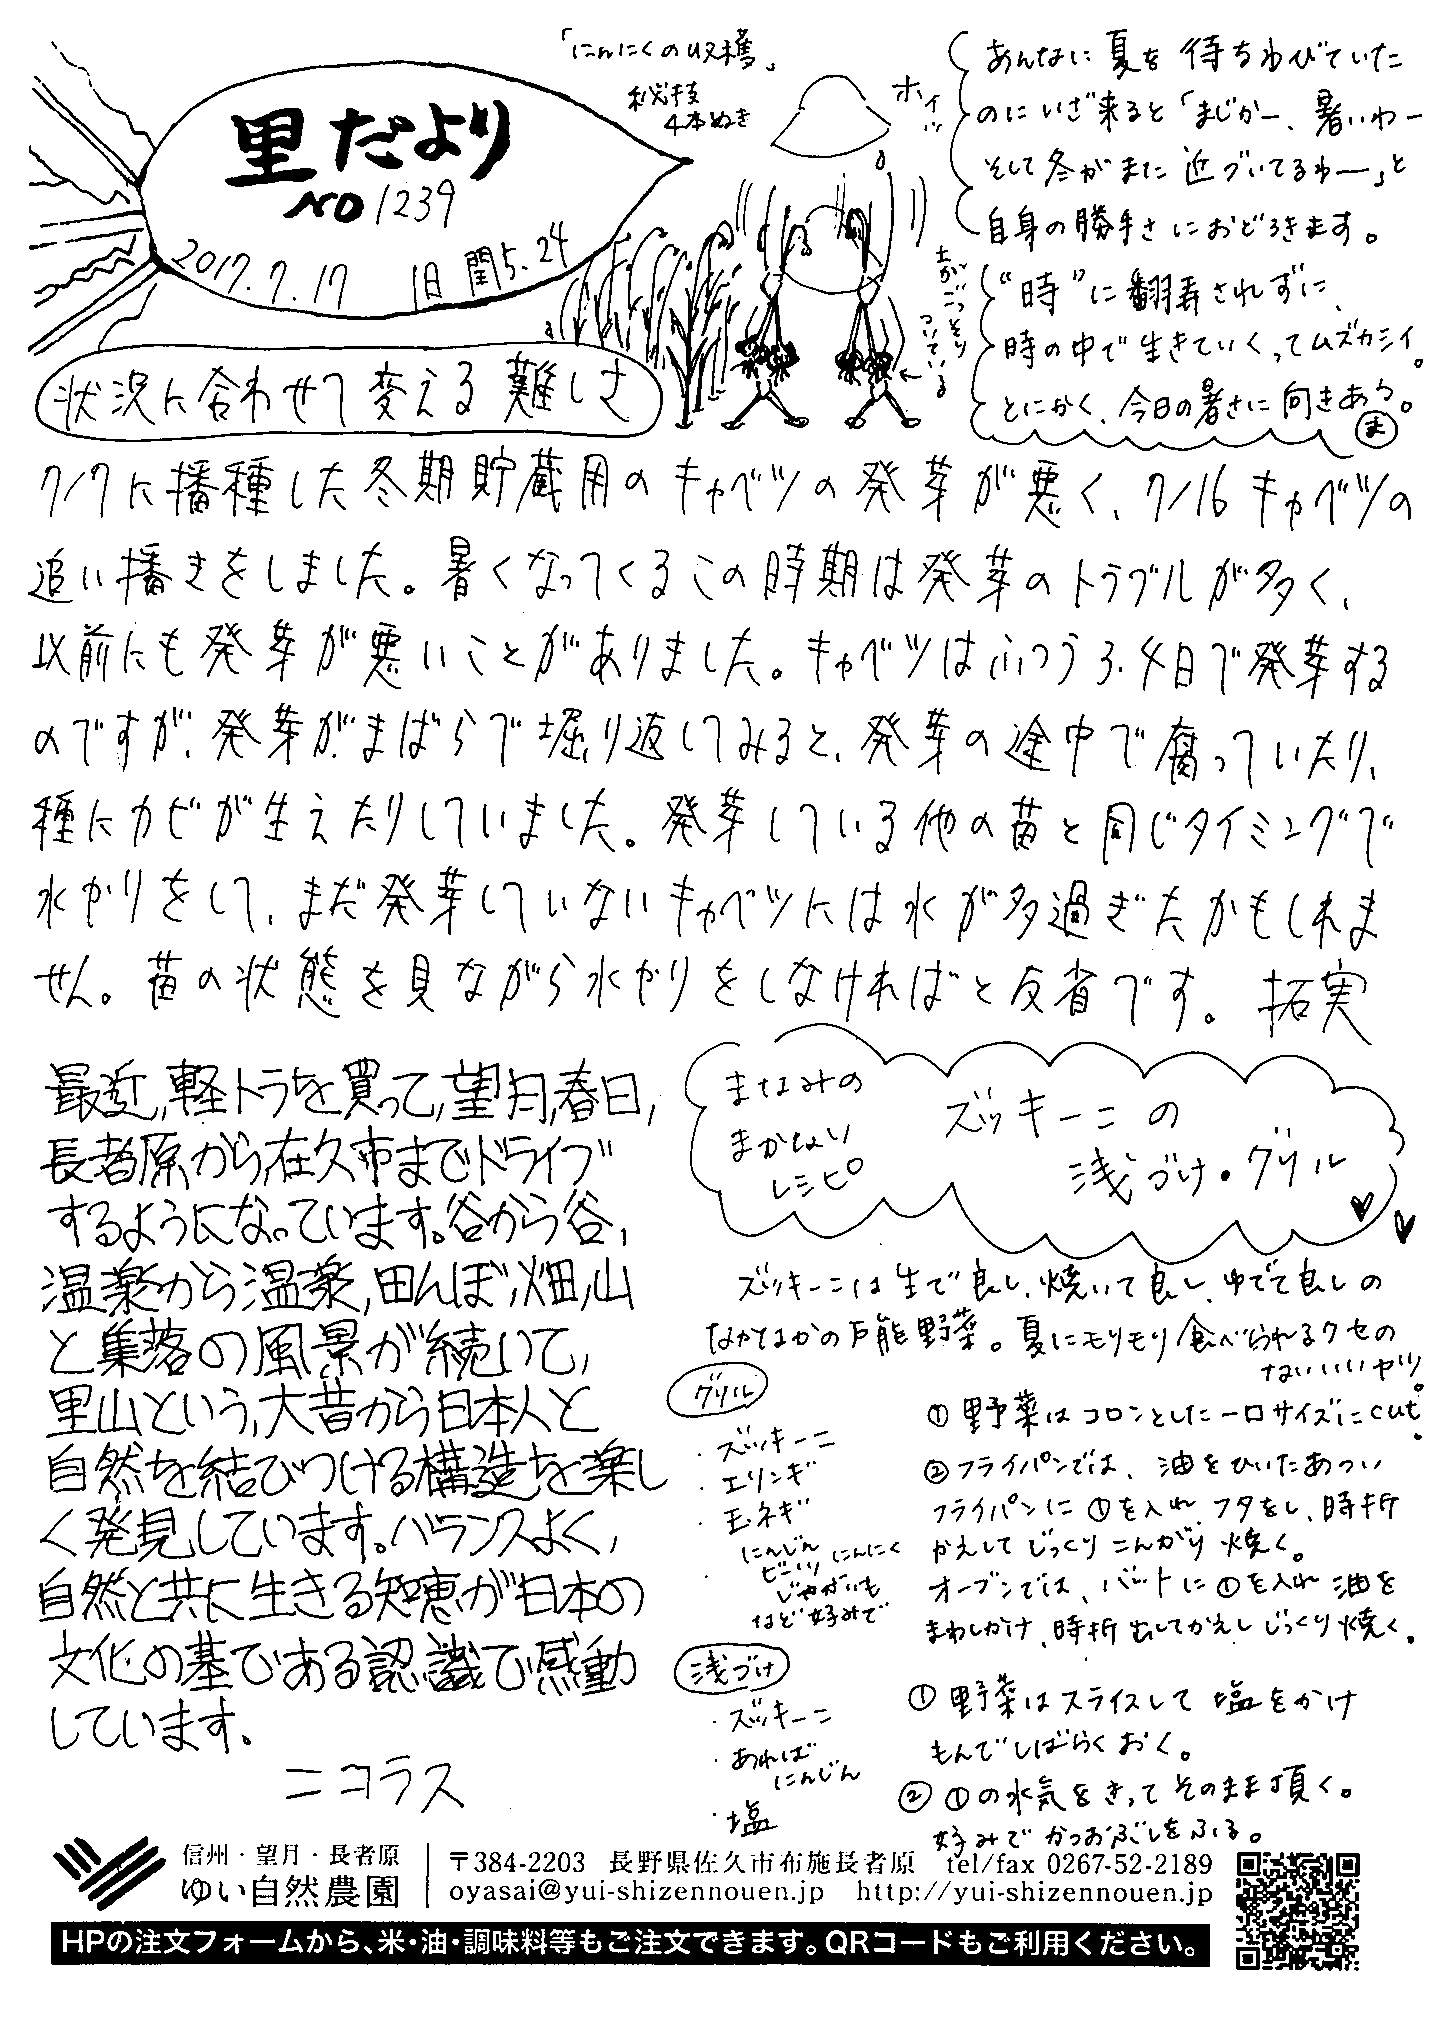 里だより
NO 1239
2017.7.17 1日 閏5.24
「にんにくの収穫」
秘技
4本ぬき
ホイッ
土がごっそり
ついている
あんなに夏を待ちわびていた
のにいざ来ると「まじかー、暑いわー
そして冬がまた近づいてるわー」と
自身の勝手さにおどろきます。
"時"に翻弄されずに、
時の中で生きていくってムズカシイ。
とにかく、今日の暑さに向きあう。
ま
状況に合わせて変える難しさ
7/7に播種した冬期貯蔵用のキャベツの発芽が悪く、7/16キャベツの
追い播きをしました。暑くなってくるこの時期は発芽のトラブルが多く、
以前にも発芽が悪いことがありました。キャベツはふつう3.4日で発芽する
のですが、発芽がまばらで堀り返してみると、発芽の途中で腐っていたり、
種にカビが生えたりしていました。発芽している他の苗と同じタイミングで
水やりをして、まだ発芽していないキャベツには水が多過ぎたかもしれま
せん。苗の状態を見ながら水やりをしなければと反省です。 拓実
最近,軽トラを買って,望月,春日,
長者原,から,佐久市までドライブ
するようになっています。谷から谷,
温泉から温泉,田んぼ,畑,山
と集落の風景が続いて,
里山という,大昔から日本人と
自然を結びつける構造を楽し
く発見しています。バランスよく,
自然と共に生きる知恵が日本の
文化の基である認識で感動
しています。
ニコラス
まなみの
まかない
レシピ
ズッキーニの
浅づけ・グリル
ズッキーニは生で良し、焼いて良し、ゆでて良しの
なかなかの万能野菜。夏にモリモリ食べられるクセの
ないいいヤツ。
グリル
・ズッキーニ
・エリンギ
・玉ネギ
にんじん
ピーマン にんにく
じゃがいも
など好みで
① 野菜はコロンとした一口サイズにcut.
② フライパンでは、油をひいたあつい
フライパンに①を入れ、フタをし、時折
かえしてじっくりこんがり焼く。
オーブンでは、バットに①を入れ油を
まわしかけ、時折出してかえしじっくり焼く。
浅づけ
・ズッキーニ
・あれば
にんじん
・塩
① 野菜はスライスして塩をかけ
もんでしばらくおく。
② ①の水気をきってそのまま頂く。
好みでかつおぶしをふる。
信州・望月・長者原
ゆい自然農園
〒384-2203 長野県佐久市布施長者原 tel/fax 0267-52-2189
oyasai@yui-shizennouen.jp http://yui-shizennouen.jp
HPの注文フォームから、米・油・調味料等もご注文できます。QRコードもご利用ください。